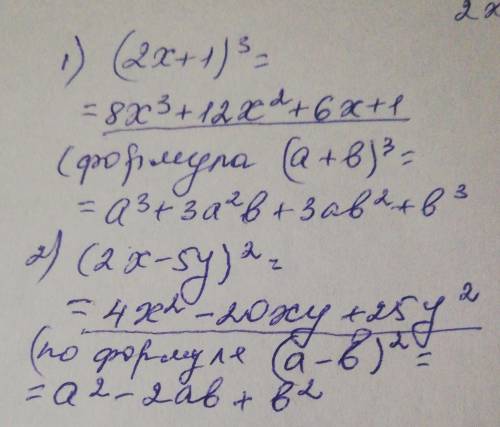 2x
1) (2x+1)³=
=8x³+12x²+6x+1
(формула (a+b)³=
=a³+3a²b+3ab²+b³
2) (2x-5y)²=
=4x²-20xy+25y²
(по формуле (a-b)²=
=a²-2ab+b²